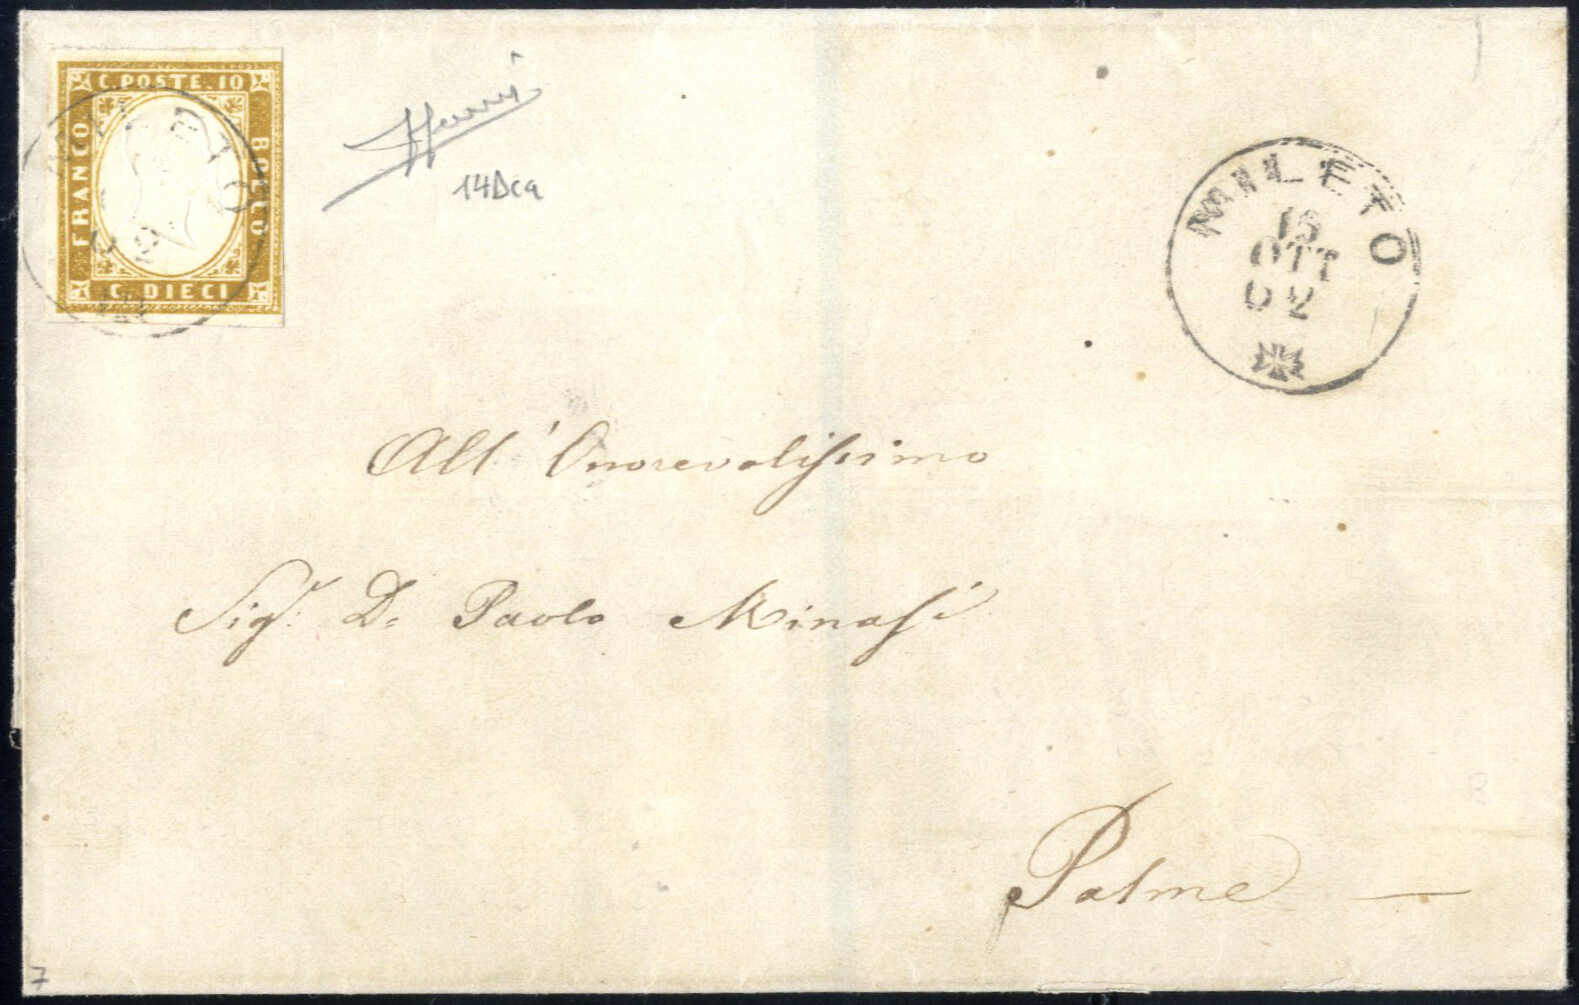 C. POSTE. 10
FRANCO
BOLLO
C. DIECI
14Dca
MILETO
15
OTT
62
All'Onorevolissimo
Sigr. Dn Paolo Minasi
Palme
7